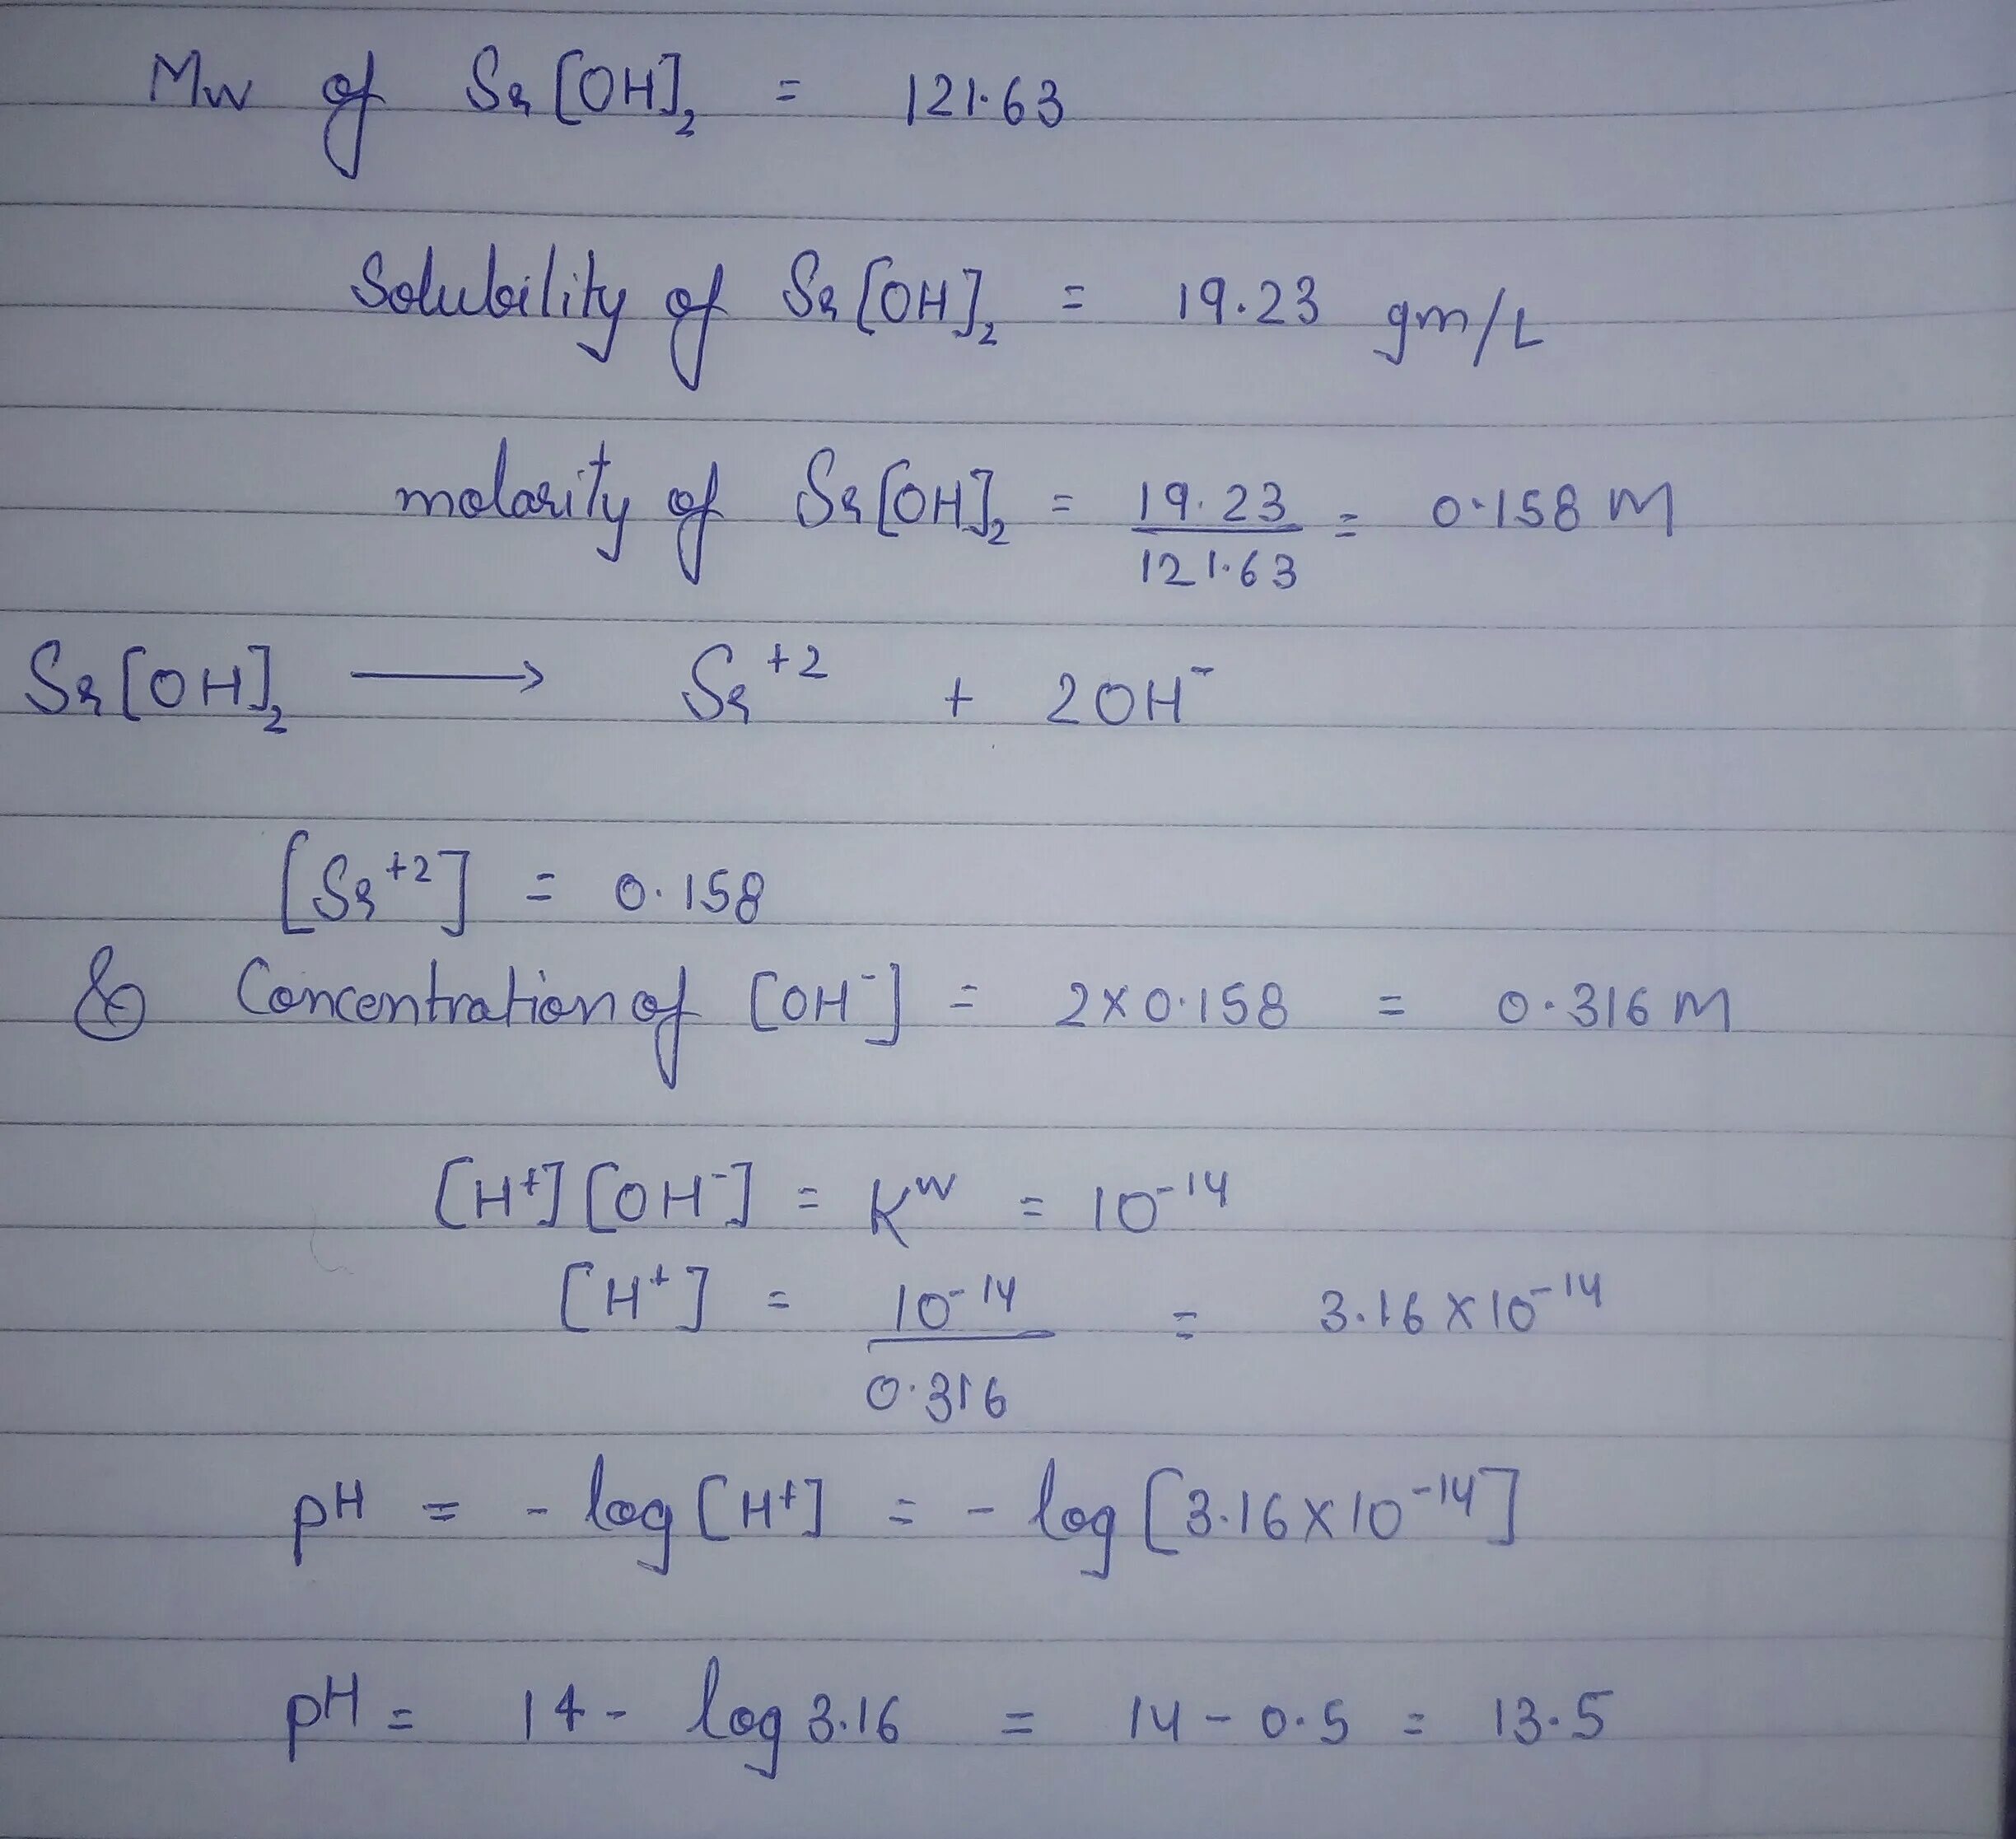 Mw of Sr[OH]₂ = 121.63
Solubility of Sr[OH]₂ = 19.23 gm/L
molarity of Sr[OH]₂ = 19.23 / 121.63 = 0.158 M
Sr[OH]₂ ⟶ Sr⁺² + 2OH⁻
[Sr⁺²] = 0.158
& Concentration of [OH⁻] = 2×0.158 = 0.316 M
[H⁺][OH⁻] = Kʷ = 10⁻¹⁴
[H⁺] = 10⁻¹⁴ / 0.316 = 3.16×10⁻¹⁴
pH = - log[H⁺] = - log[3.16×10⁻¹⁴]
pH = 14 - log 3.16 = 14 - 0.5 = 13.5